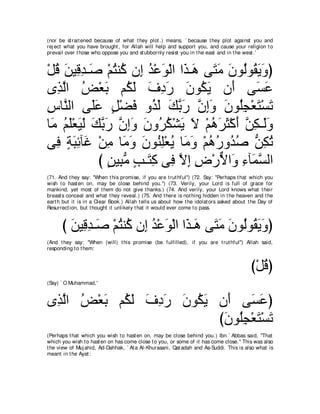 (nor be straitened because of what they plot.) means, `because they plot against you and
reject what you have brought, for Allah will help and support you, and cause your religion to
prevail over those who oppose you and stubbornly resist you in the east and in the west.'
وَيَقُولُونَ مَتَى هَـذَا الْوَعْدُ إِن كُنتُمْ صَـدِقِينَ قُلْ)
عَسَى أَن يَكُونَ رَدِفَ لَكُم بَعْضُ الَّذِى
تَسْتَعْجِلُونَ وَإِنَّ رَبَّكَ لَذُو فَضْلٍ عَلَى النَّاسِ
وَلَـكِنَّ أَكْثَرَهُمْ لاَ يَشْكُرُونَ وَإِنَّ رَبَّكَ لَيَعْلَمُ مَا
تُكِنُّ صُدُورُهُمْ وَمَا يُعْلِنُونَ وَمَا مِنْ غَآئِبَةٍ فِى
السَّمَآءِ وَالاٌّرْضِ إِلاَّ فِى كِتَـبٍ مُّبِينٍ )
(71. And they say: "When this promise, if you are truthful'') (72. Say: "Perhaps that which you
wish to hasten on, may be close behind you.'') (73. Verily, your Lord is full of grace for
mankind, yet most of them do not give thanks.) (74. And verily, your Lord knows what their
breasts conceal and what they reveal.) (75. And there is nothing hidden in the heaven and the
earth but it is in a Clear Book.) Allah tells us about how the idolators asked about the Day of
Resurrection, but thought it unlikely that it would ever come to pass.
(وَيَقُولُونَ مَتَى هَـذَا الْوَعْدُ إِن كُنتُمْ صَـدِقِينَ )
(And they say: "When (will) this promise (be fulfilled), if you are truthful'') Allah said,
responding to them:
(قُلْ)
(Say) `O Muhammad,'
(عَسَى أَن يَكُونَ رَدِفَ لَكُم بَعْضُ الَّذِى
تَسْتَعْجِلُونَ)
(Perhaps that which you wish to hasten on, may be close behind you.) Ibn `Abbas said, "That
which you wish to hasten on has come close to you, or some of it has come close.'' This was also
the view of Mujahid, Ad-Dahhak, `Ata Al-Khurasani, Qatadah and As-Suddi. This is also what is
meant in the Ayat: